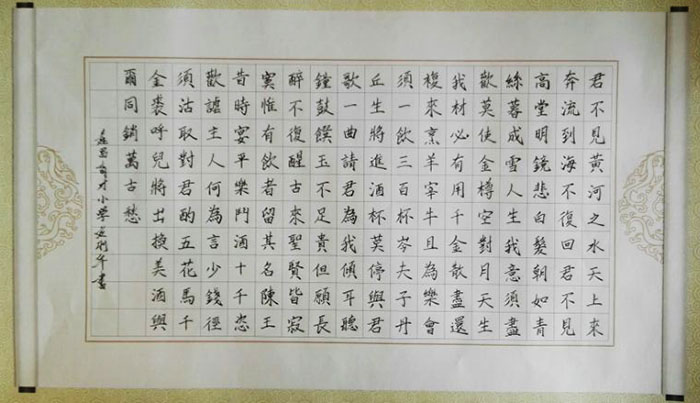 君不見黃河之水天上來
奔流到海不復回君不見
高堂明鏡悲白髮朝如青
絲暮成雪人生我意須盡
歡莫使金樽空對月天生
我材必有用千金散盡還
複來烹羊宰牛且為樂會
須一飲三百杯岑夫子丹
丘生將進酒杯莫停與君
歌一曲請君為我傾耳聽
鐘鼓饌玉不足貴但願長
醉不復醒古來聖賢皆寂
寞惟有飲者留其名陳王
昔時宴平樂鬥酒十千恣
歡謔主人何為言少錢徑
須沽取對君酌五花馬千
金裘呼兒將出換美酒與
爾同銷萬古愁
育才小學 書